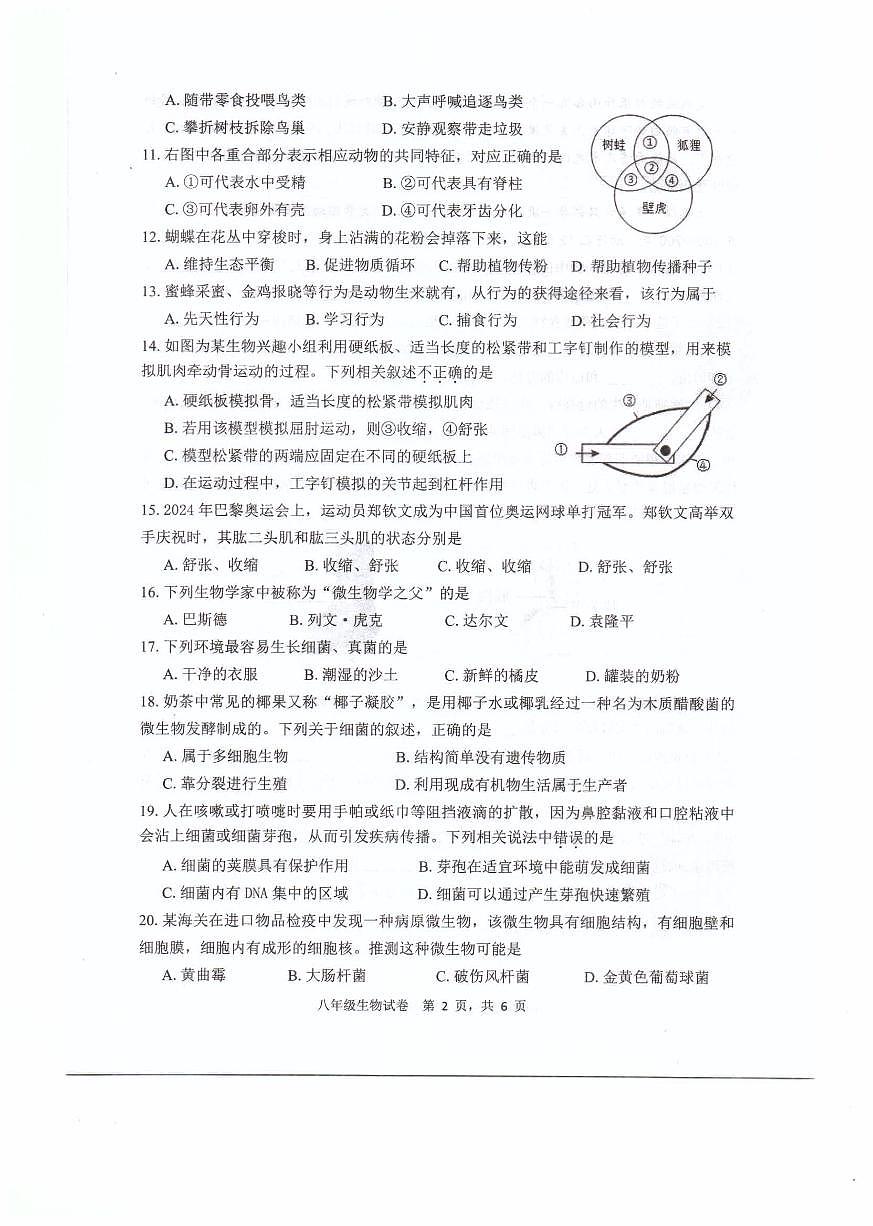 A. 随带零食投喂鸟类 B. 大声呼喊追逐鸟类
C. 攀折树枝拆除鸟巢 D. 安静观察带走垃圾
11. 右图中各重合部分表示相应动物的共同特征，对应正确的是
A. ①可代表水中受精 B. ②可代表具有脊柱
C. ③可代表卵外有壳 D. ④可代表牙齿分化
树蛙 ① 狐狸
②
③ ④
壁虎
12. 蝴蝶在花丛中穿梭时，身上沾满的花粉会掉落下来，这能
A. 维持生态平衡 B. 促进物质循环 C. 帮助植物传粉 D. 帮助植物传播种子
13. 蜜蜂采蜜、金鸡报晓等行为是动物生来就有，从行为的获得途径来看，该行为属于
A. 先天性行为 B. 学习行为 C. 捕食行为 D. 社会行为
14. 如图为某生物兴趣小组利用硬纸板、适当长度的松紧带和工字钉制作的模型，用来模
拟肌肉牵动骨运动的过程。下列相关叙述不正确的是
A. 硬纸板模拟骨，适当长度的松紧带模拟肌肉
B. 若用该模型模拟屈肘运动，则③收缩，④舒张
C. 模型松紧带的两端应固定在不同的硬纸板上
D. 在运动过程中，工字钉模拟的关节起到杠杆作用
②
③
①
④
15. 2024 年巴黎奥运会上，运动员郑钦文成为中国首位奥运网球单打冠军。郑钦文高举双
手庆祝时，其肱二头肌和肱三头肌的状态分别是
A. 舒张、收缩 B. 收缩、舒张 C. 收缩、收缩 D. 舒张、舒张
16. 下列生物学家中被称为“微生物学之父”的是
A. 巴斯德 B. 列文·虎克 C. 达尔文 D. 袁隆平
17. 下列环境最容易生长细菌、真菌的是
A. 干净的衣服 B. 潮湿的沙土 C. 新鲜的橘皮 D. 罐装的奶粉
18. 奶茶中常见的椰果又称“椰子凝胶”，是用椰子水或椰乳经过一种名为木质醋酸菌的
微生物发酵制成的。下列关于细菌的叙述，正确的是
A. 属于多细胞生物 B. 结构简单没有遗传物质
C. 靠分裂进行生殖 D. 利用现成有机物生活属于生产者
19. 人在咳嗽或打喷嚏时要用手帕或纸巾等阻挡液滴的扩散，因为鼻腔黏液和口腔粘液中
会沾上细菌或细菌芽孢，从而引发疾病传播。下列相关说法中错误的是
A. 细菌的荚膜具有保护作用 B. 芽孢在适宜环境中能萌发成细菌
C. 细菌内有 DNA 集中的区域 D. 细菌可以通过产生芽孢快速繁殖
20. 某海关在进口物品检疫中发现一种病原微生物，该微生物具有细胞结构，有细胞壁和
细胞膜，细胞内有成形的细胞核。推测这种微生物可能是
A. 黄曲霉 B. 大肠杆菌 C. 破伤风杆菌 D. 金黄色葡萄球菌
八年级生物试卷 第 2 页，共 6 页